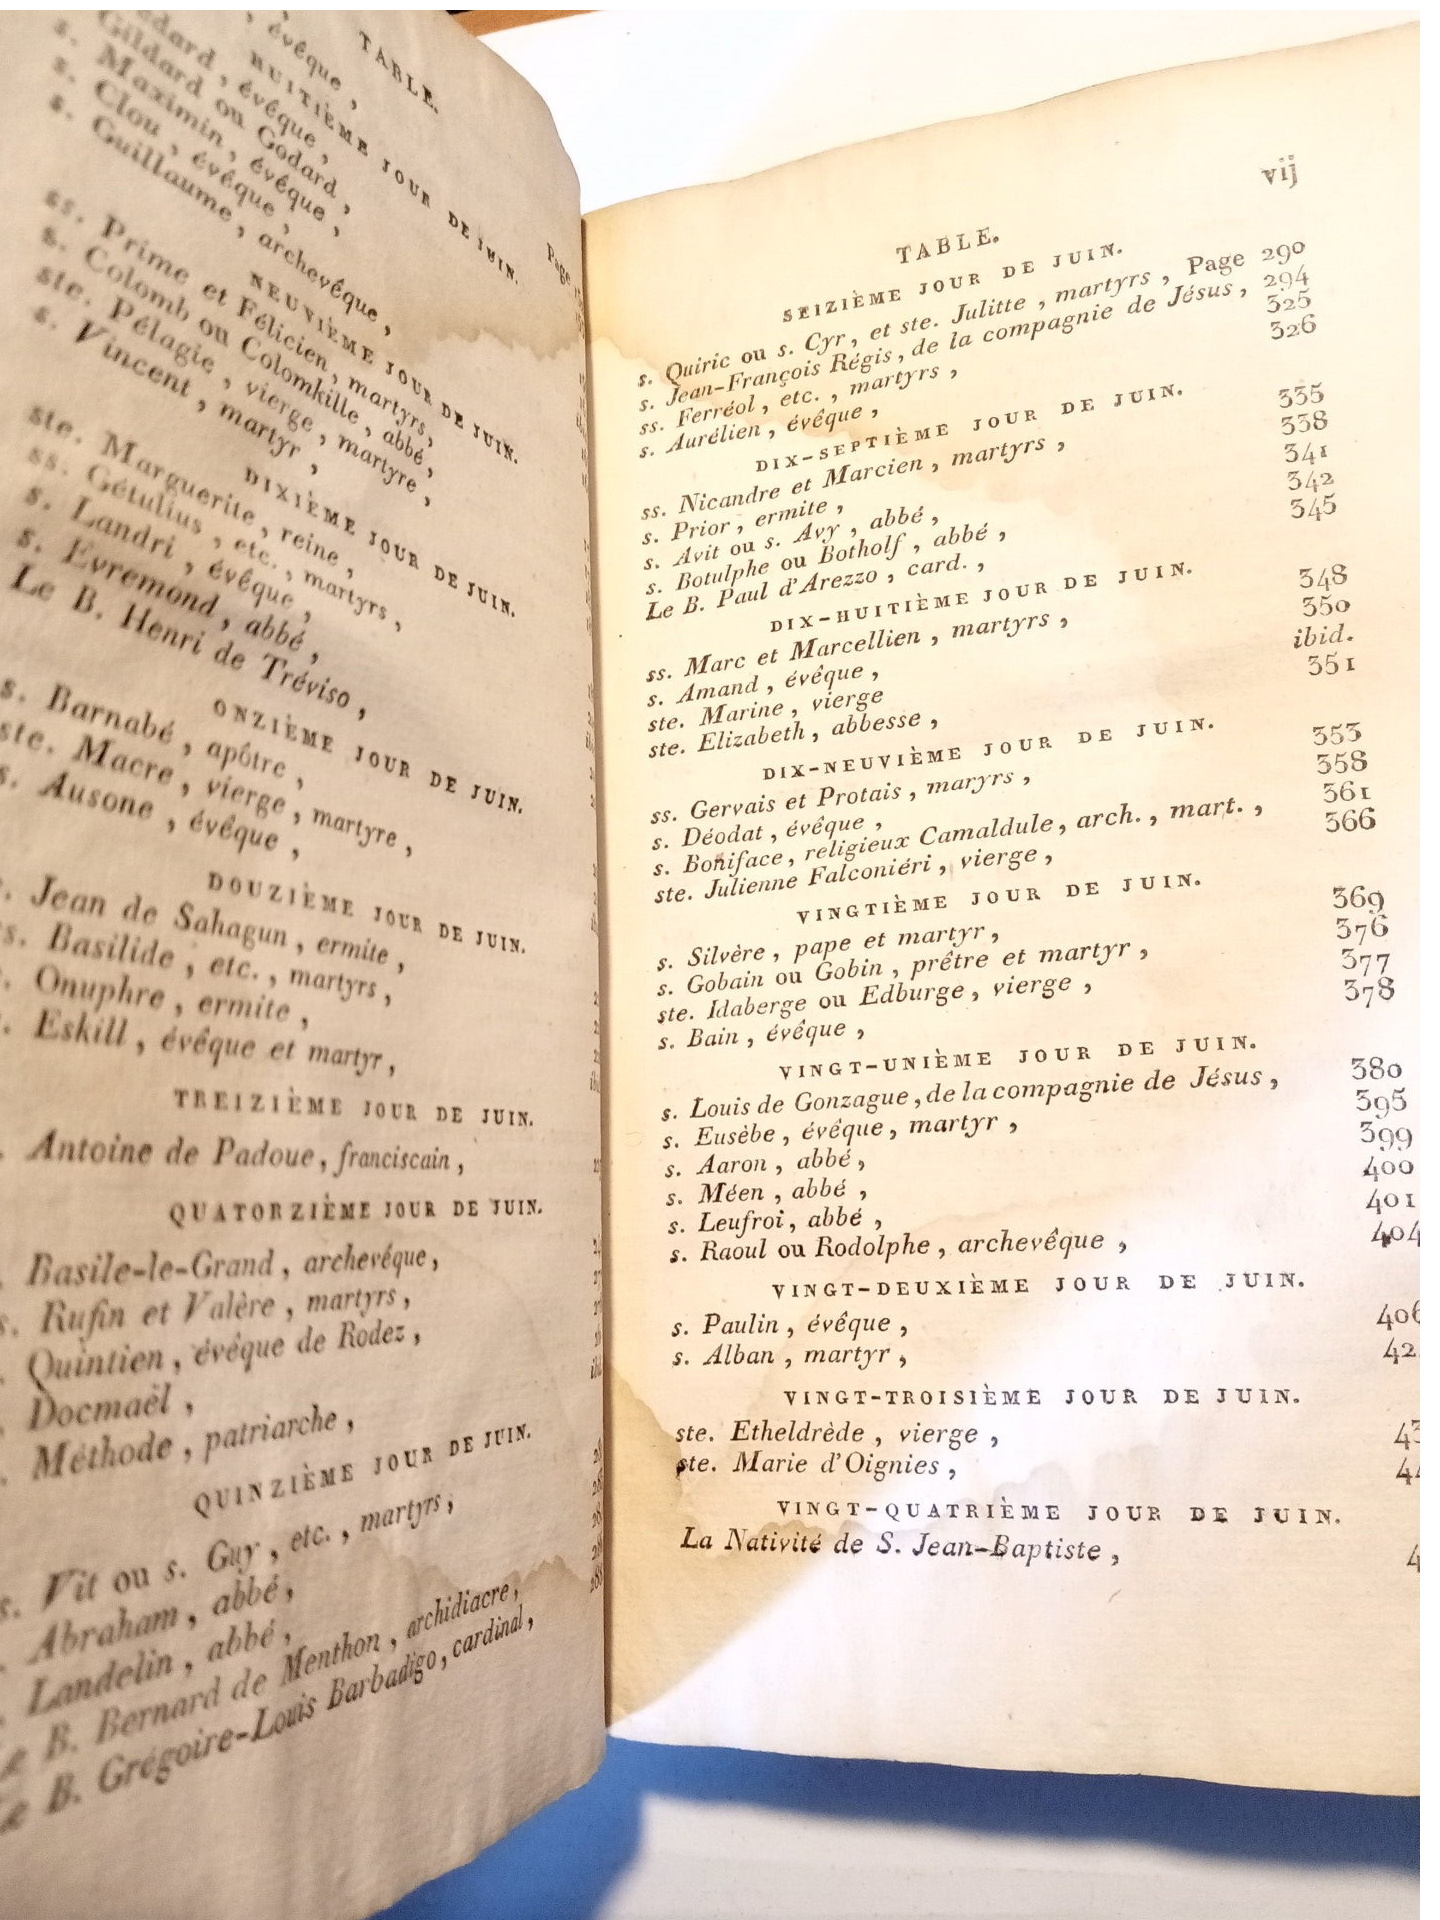 TABLE.
évêque,
HUITIÈME JOUR DE JUIN.
évêque,
Gildard ou Godard,
s. Maximin, évêque,
s. Clou, évêque,
s. Guillaume, archevêque,
NEUVIÈME JOUR DE JUIN.
ss. Prime et Félicien, martyrs,
s. Colomb ou Colomkille, abbé,
ste. Pélagie, vierge, martyre,
s. Vincent, martyr,
DIXIÈME JOUR DE JUIN.
ste. Marguerite, reine,
ss. Gétulius, etc., martyrs,
s. Landri, évêque,
s. Evremond, abbé,
Le B. Henri de Tréviso,
ONZIÈME JOUR DE JUIN.
s. Barnabé, apôtre,
ste. Macre, vierge, martyre,
s. Ausone, évêque,
DOUZIÈME JOUR DE JUIN.
Jean de Sahagun, ermite,
Basilide, etc., martyrs,
Onuphre, ermite,
Eskill, évêque et martyr,
TREIZIÈME JOUR DE JUIN.
Antoine de Padoue, franciscain,
QUATORZIÈME JOUR DE JUIN.
Basile-le-Grand, archevêque,
Rufin et Valère, martyrs,
Quintien, évêque de Rodez,
Docmaël,
Méthode, patriarche,
QUINZIÈME JOUR DE JUIN.
s. Vit ou s. Guy, etc., martyrs,
Abraham, abbé,
Landelin, abbé,
B. Bernard de Menthon, archidiacre,
B. Grégoire-Louis Barbadigo, cardinal,
vij
TABLE.
SEIZIÈME JOUR DE JUIN.
s. Quiric ou s. Cyr, et ste. Julitte, martyrs, Page 290
s. Jean-François Régis, de la compagnie de Jésus, 294
ss. Ferréol, etc., martyrs, 325
s. Aurélien, évêque, 326
DIX-SEPTIÈME JOUR DE JUIN.
ss. Nicandre et Marcien, martyrs, 335
s. Prior, ermite, 338
s. Avit ou s. Avy, abbé, 341
s. Botulphe ou Botholf, abbé, 342
Le B. Paul d'Arezzo, card., 345
DIX-HUITIÈME JOUR DE JUIN.
ss. Marc et Marcellien, martyrs, 348
s. Amand, évêque, 350
ste. Marine, vierge ibid.
ste. Elizabeth, abbesse, 351
DIX-NEUVIÈME JOUR DE JUIN.
ss. Gervais et Protais, maryrs, 353
s. Déodat, évêque, 358
s. Boniface, religieux Camaldule, arch., mart., 361
ste. Julienne Falconiéri, vierge, 366
VINGTIÈME JOUR DE JUIN.
s. Silvère, pape et martyr, 369
s. Gobain ou Gobin, prêtre et martyr, 376
ste. Idaberge ou Edburge, vierge, 377
s. Bain, évêque, 378
VINGT-UNIÈME JOUR DE JUIN.
s. Louis de Gonzague, de la compagnie de Jésus, 380
s. Eusèbe, évêque, martyr, 395
s. Aaron, abbé, 399
s. Méen, abbé, 400
s. Leufroi, abbé, 401
s. Raoul ou Rodolphe, archevêque, 404
VINGT-DEUXIÈME JOUR DE JUIN.
s. Paulin, évêque, 406
s. Alban, martyr,
VINGT-TROISIÈME JOUR DE JUIN.
ste. Etheldrède, vierge,
ste. Marie d'Oignies,
VINGT-QUATRIÈME JOUR DE JUIN.
La Nativité de S. Jean-Baptiste,